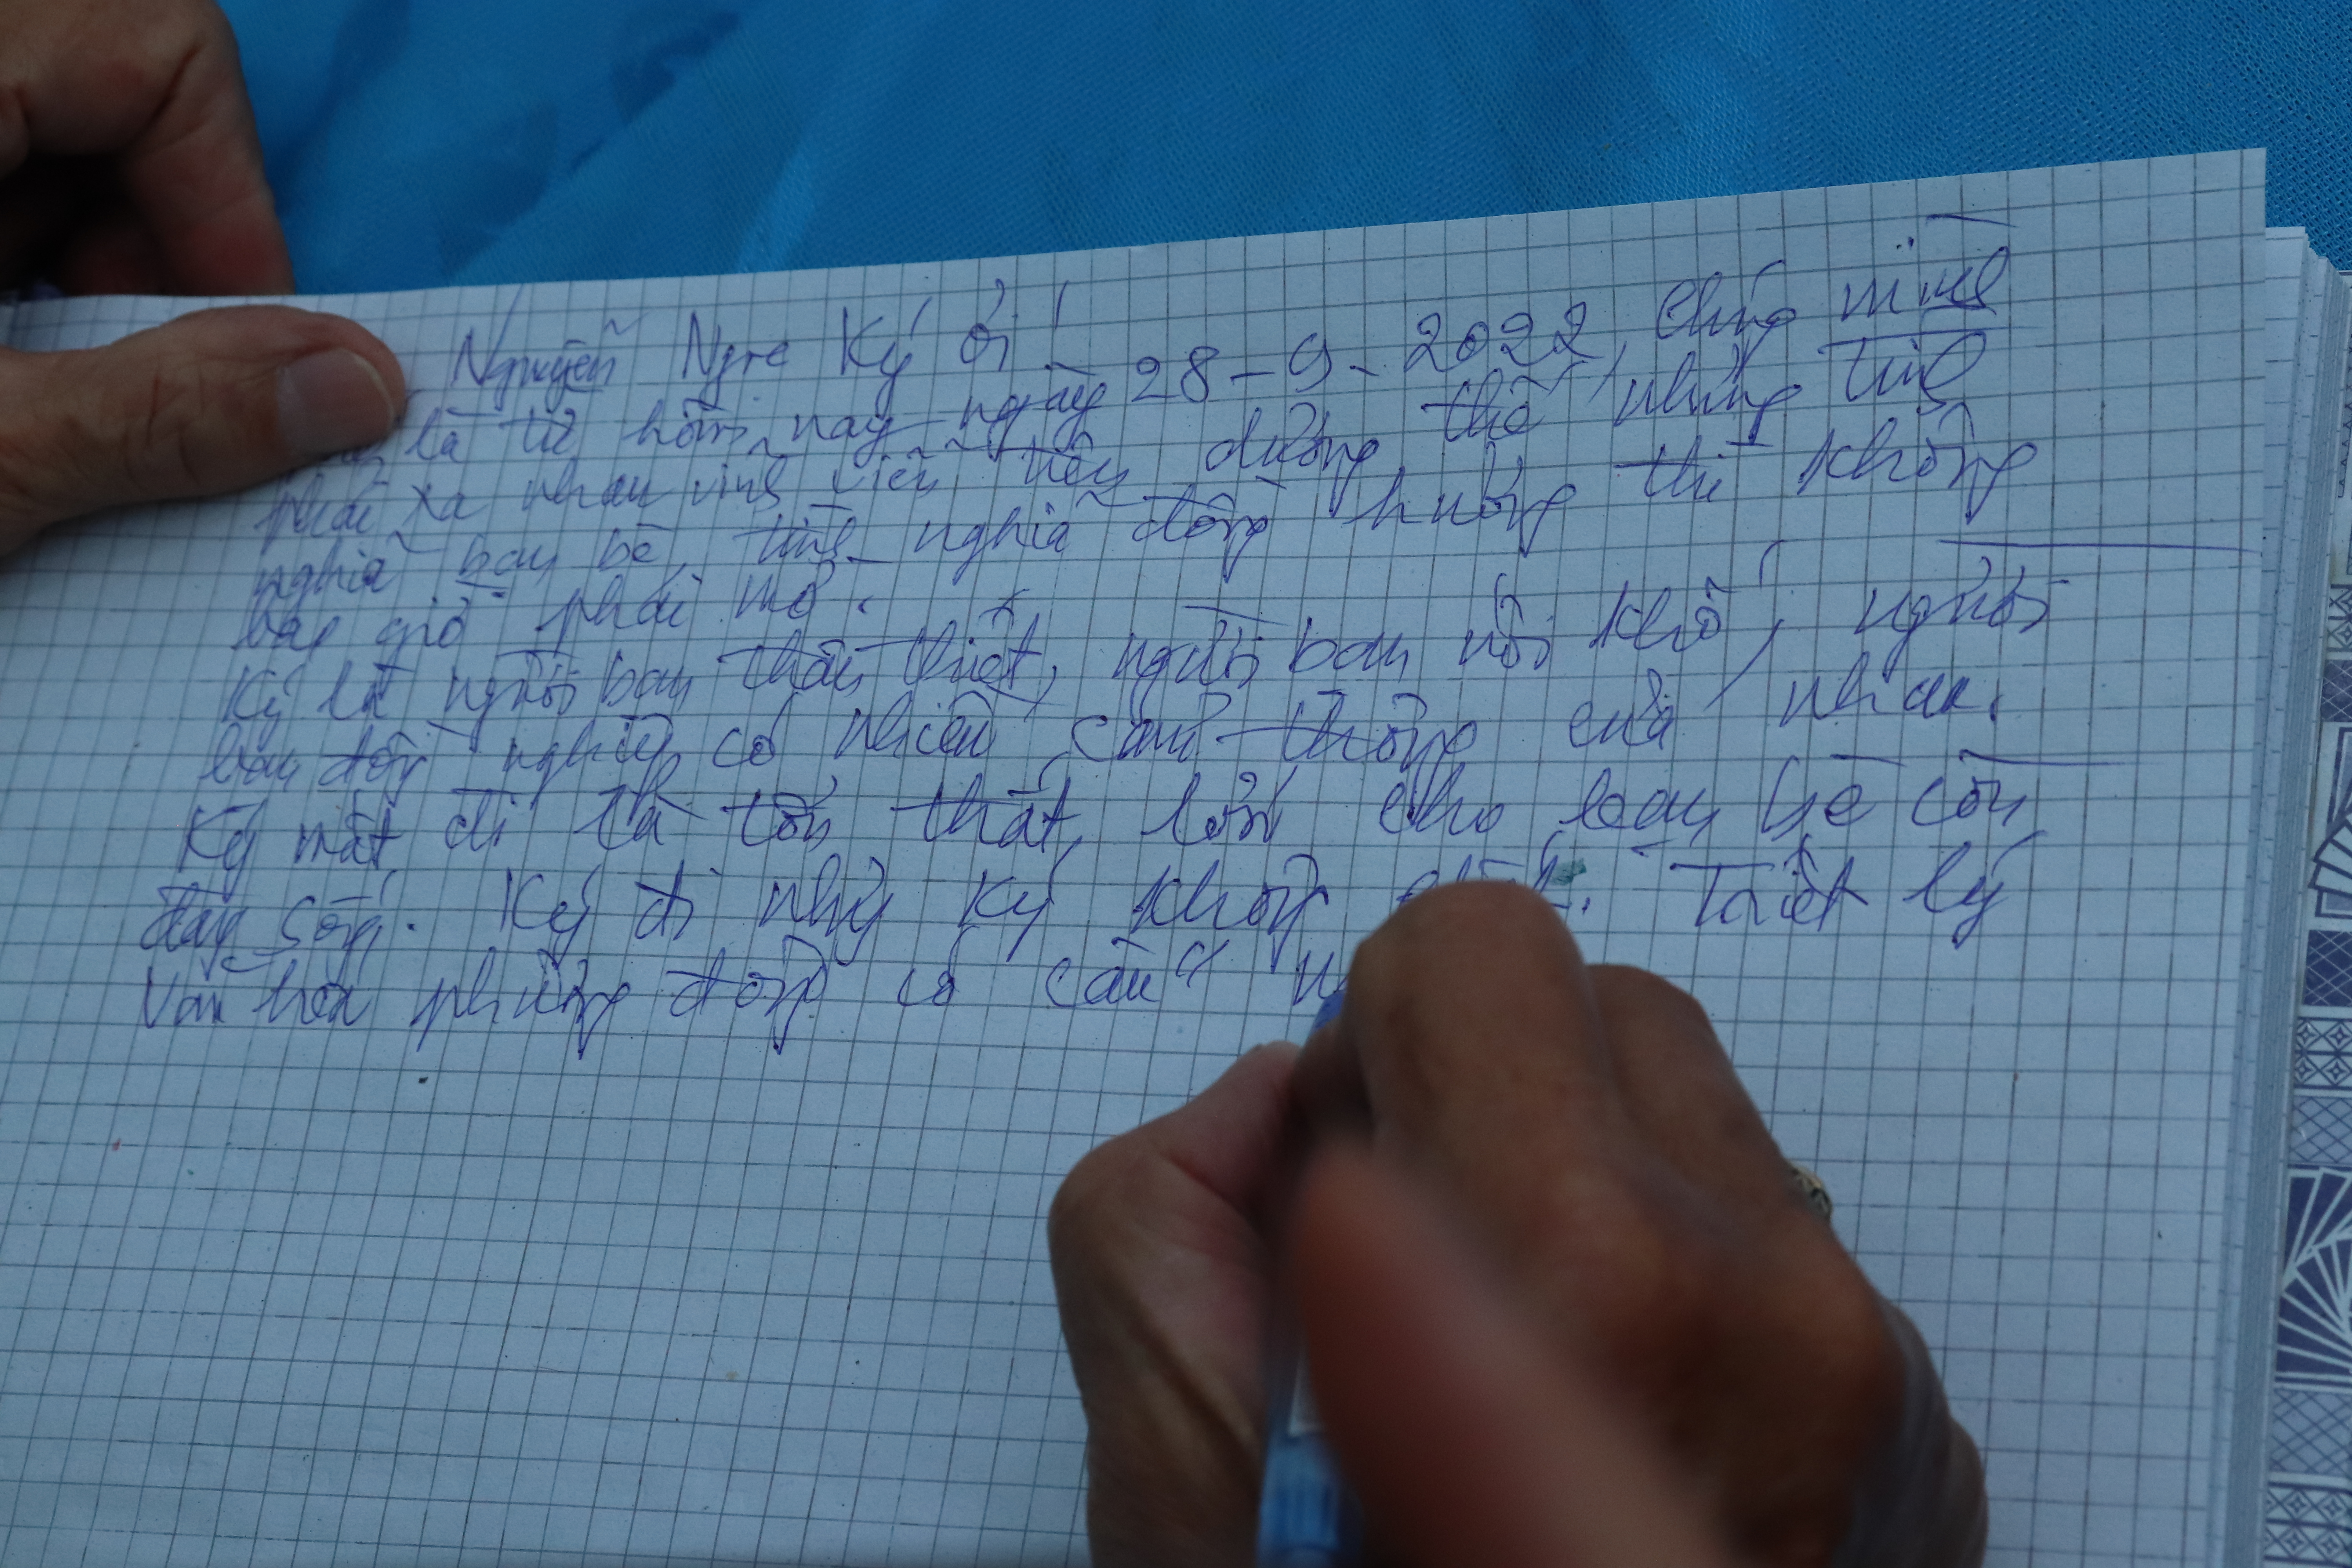 Nguyễn Ngọc Ký ơi!
là từ hôm nay ngày 28-9-2022, chúng mình
phải xa nhau vĩnh viễn trên dương thế, nhưng tình
nghĩa bạn bè, tình nghĩa đồng hương thì không
bao giờ phải mờ.
Ký là người bạn thân thiết, người bạn nối khố, người
bạn đồng nghiệp có nhiều cảm thông của nhau.
Ký mất đi là tổn thất lớn cho bạn bè còn
đang sống. Ký đi nhưng Ký không Triết lý
Văn hóa phương đông có câu "